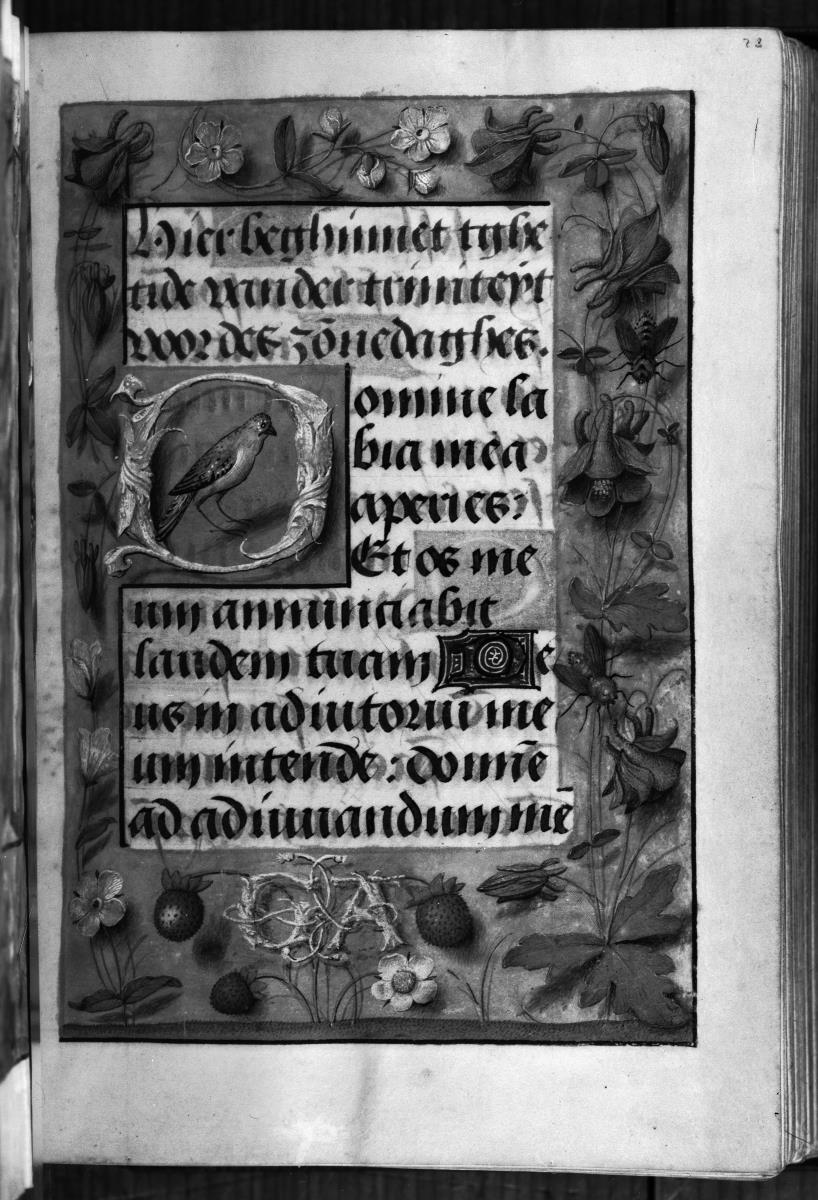 28
Hier beghinnet tghe
tide vander triniteyt
voor des zōnedaghes.
Domine la
bia mea
aperies:
Et os me
um annunciabit
laudem tuam De
us in adiutoriū me
um intende: domīe
ad adiuuandum mē
GA